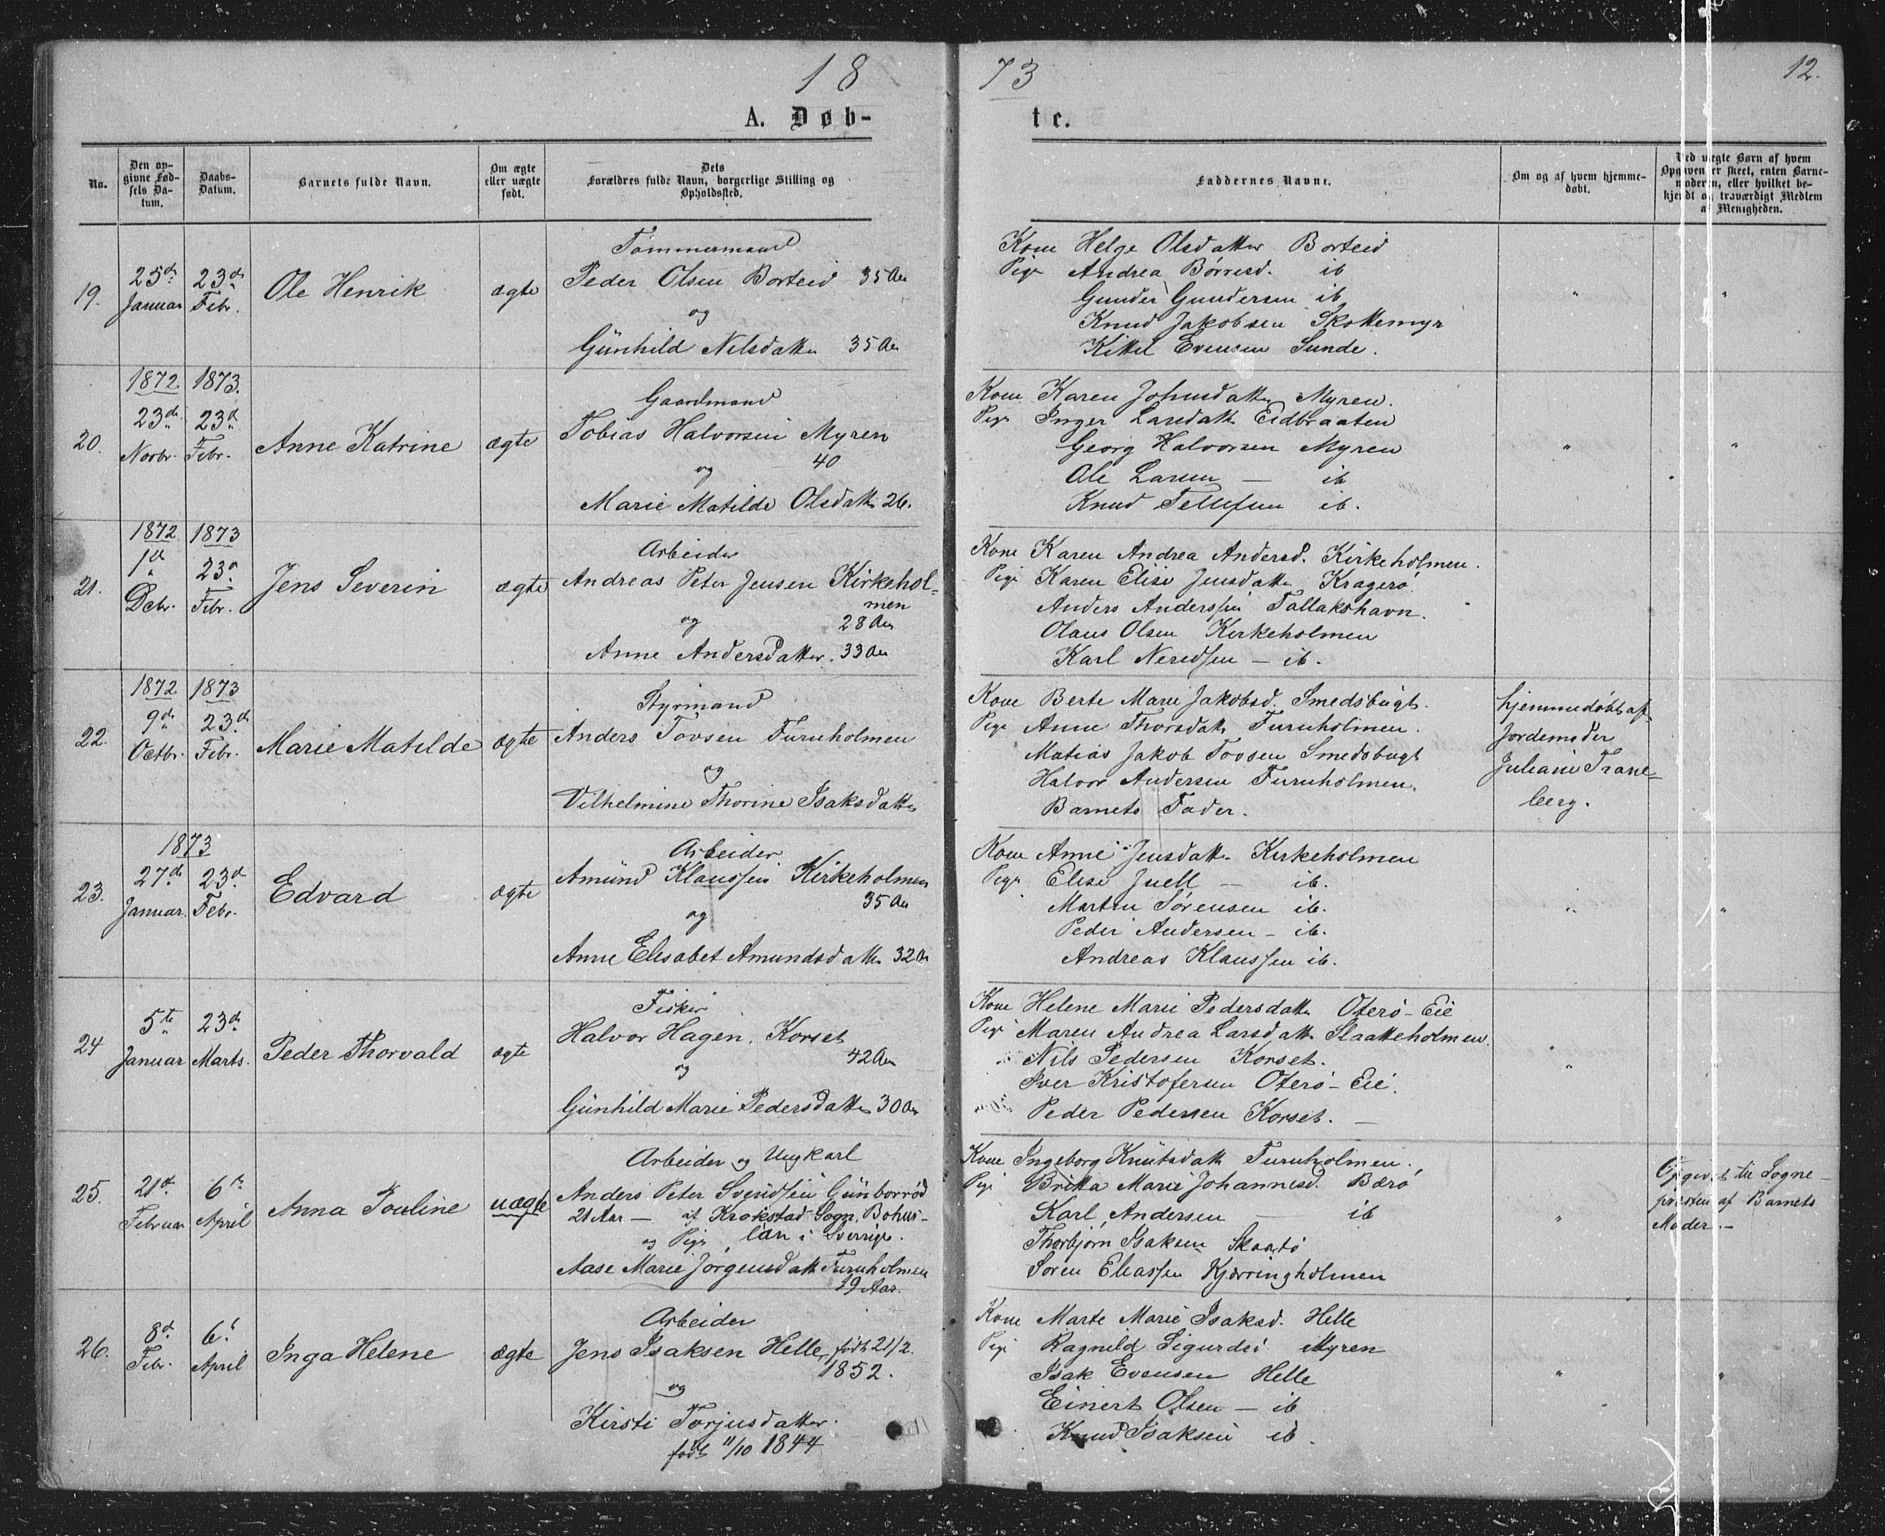 18 73
12.
A. Døb- te.
No.
Den opgivne Fødsels Datum.
Daabs-Datum.
Barnets fulde Navn.
Om ægte eller uægte født.
Dets Forældres fulde Navn, borgerlige Stilling og Opholdssted.
Faddernes Navne.
Om og af hvem hjemmedøbt.
Ved uægte Børn af hvem Opgaven er skeet, enten Barnemoderen, eller hvilket bekjendt og troværdigt Medlem af Menigheden.
19.
25de Januar
23de Febr.
Ole Henrik
ægte
Tømmermand
Peder Olsen Borteid 35 Aar
og
Günhild Nilsdatter 35 Aar
Kone Helge Olsdatter Borteid
Pige Andrea Børresd. ib
Gunder Gundersen ib
Knud Jakobsen Skottemyr
Kittel Evensen Sunde.
20.
1872 1873.
23de Novbr.
23de Febr.
Anne Katrine
ægte
Gaardmand
Tobias Halvorsen Myren
og 40
Marie Matilde Olsdatt 26.
Kone Karen Johnsdatter Myren.
Pige Inger Larsdatt Eidbraaten
Georg Halvorsen Myren
Ole Larsen — ib
Knud Tellefsen ib.
21.
1872 1873
1de Decbr.
23de Febr.
Jens Severin
ægte
Arbeider
Andreas Peter Jensen Kirkehol-
men
og 28 Aar
Anne Andersdatter. 33 Aar
Kone Karen Andrea Andersd. Kirkeholmen.
Pige Karen Elise Jensdatt Kragerö
Anders Anderssen Tallakshavn.
Olaus Olsen Kirkeholmen
Karl Neredsen — ib.
22.
1872 1873
9de Octbr.
23de Febr.
Marie Matilde
ægte
Styrmand
Anders Tovsen Furuholmen
og
Vilhelmine Thorine Isaksdatt
Kone Berte Marie Jakobsd. Smedsbugt.
Pige Anne Thorsdatt Furuholmen.
Matias Jakob Tovsen Smedsbugt
Halvor Andersen Furuholmen.
Barnets Fader.
hjemmedøbt af
Jordemoder
Juliane Trane-
berg.
23.
1873
27de Januar.
23de Febr.
Edvard
ægte
Arbeider
Amünd Klaussen Kirkeholmen
og 35 Aar
Anne Elisabet Amundsdatt 32 Aar
Kone Anne Jensdatt. Kirkeholmen
Pige Elise Juell — ib.
Martin Sörensen ib.
Peder Andersen — ib.
Andreas Klaussen ib.
24
5te Januar
23de Marts.
Peder Thorvald
ægte
Fisker
Halvor Hagen, Korset
og 42 Aar
Günhild Marie Pedersdatt 30 Aar
Kone Helene Marie Pedersdatt Oterö-Eie
Pige Maren Andrea Larsdatt Slaatteholmen.
Nils Pedersen Korset.
Iver Kristofersen Oterö-Eie.
Peder Pedersen Korset. —
25.
21de Februar
6te April
Anna Pouline
uægte
Arbeider og Ungkarl
Anders Peter Svendsen Günborröd
21 Aar — af Krokstad Sogn, Bohus-
og Pige län i Sverrige.
Aase Marie Jörgensdatt Furuholmen
19 Aar.
Kone Ingeborg Knütsdatt Furuholmen.
Pige Britta Marie Johannesd. Bærö
Karl Andersen — ib
Thorbjörn Isaksen Skaatö
Sören Eliassen Kjærringholmen
Opgivet til Sogne-
præsten af Barnets
Moder. —
26.
8de Febr.
6te April
Inga Helene
ægte
Arbeider
Jens Isaksen Helle, født 21/2.
1852.
og
Kirsti Torjusdatter.
født 11/10 1844
Kone Marte Marie Isaksd. Helle
Pige Ragnild Sigurdsd Myren
Isak Evensen Helle
Einert Olsen — ib
Knud Isaksen ib.